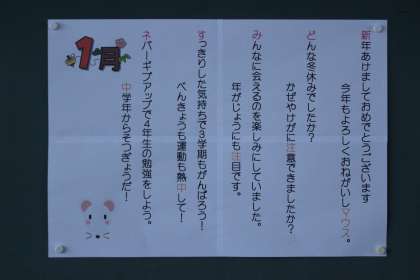 1月
新年あけましておめでとうございます
今年もよろしくおねがいしマウス。
どんな冬休みでしたか?
かぜやけがに注意できましたか?
みんなに会えるのを楽しみにしていました。
年がじょうにも注目です。
すっきりした気持ちで3学期もがんばろう!
べんきょうも運動も熱中して!
ネバーギブアップで4年生の勉強をしよう。
中学年からそつぎょうだ!